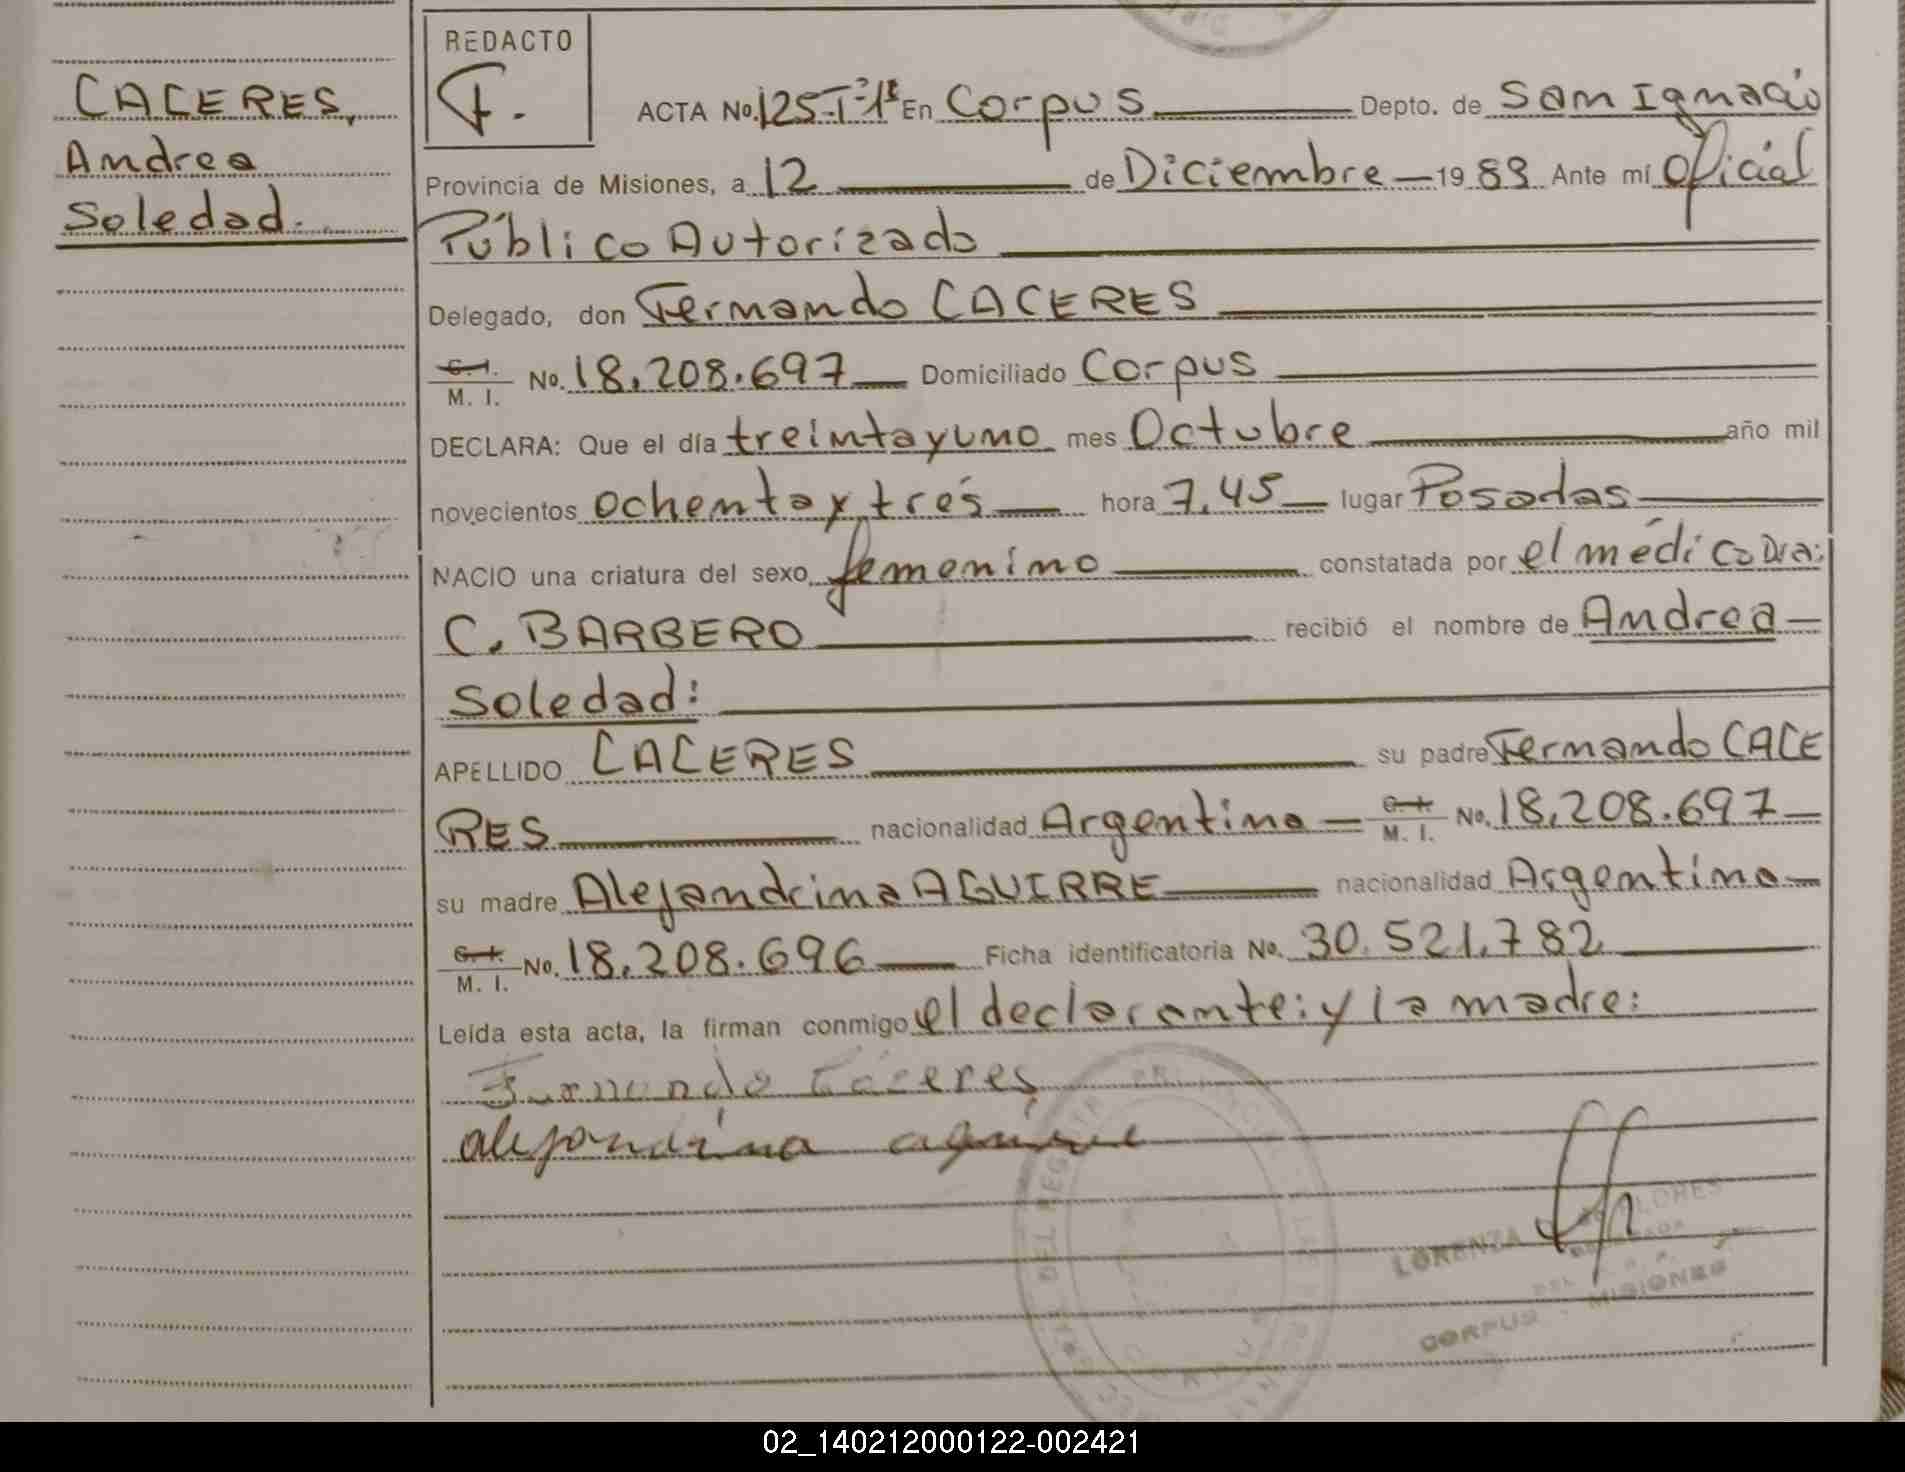 CACERES,
Andrea
Soledad.
REDACTO
F.
ACTA No. 125-T-1º En Corpus Depto. de San Ignacio
Provincia de Misiones, a 12 de Diciembre 1983 Ante mí Oficial
Público Autorizado
Delegado, don Fernando CACERES
C. I.
M. I. No. 18.208.697 Domiciliado Corpus
DECLARA: Que el día treinta y uno mes Octubre año mil
novecientos ochenta y tres hora 7,45 lugar Posadas
NACIO una criatura del sexo femenino constatada por el médico Dra:
C. BARBERO recibió el nombre de Andrea
Soledad:
APELLIDO CACERES su padre Fernando CACE
RES nacionalidad Argentino C. I. M. I. No. 18.208.697
su madre Alejandrina AGUIRRE nacionalidad Argentina
C. I. M. I. No. 18.208.696 Ficha identificatoria No. 30.521.782
Leída esta acta, la firman conmigo el declarante: y la madre:
Fernando Caceres
alejandrina aguirre
LORENZA FLORES
CORPUS - MISIONES
02_140212000122-002421